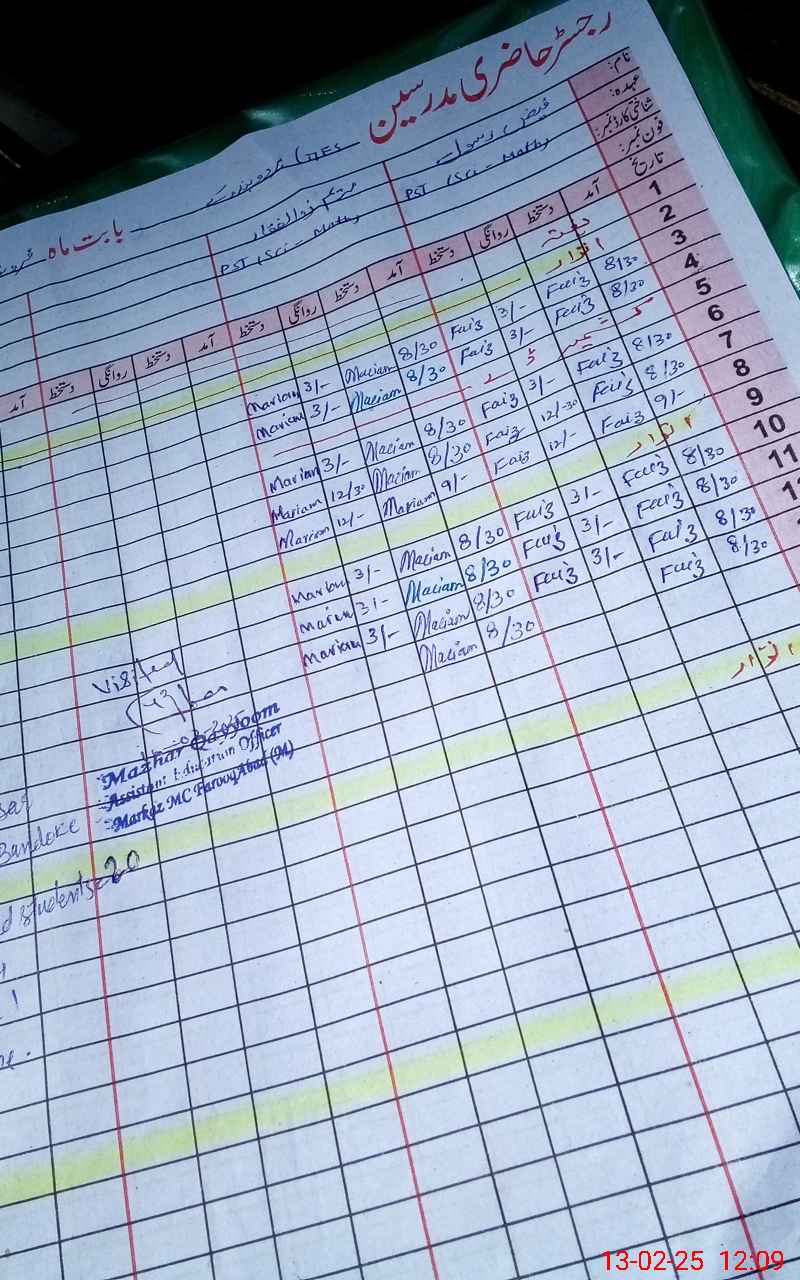 رجسٹر حاضری مدرسین
بابت ماہ
نام:
فیض رسول
عہدہ:
PST (Sci - Math)
PST (Sci - Math)
شناختی کارڈ نمبر:
فون نمبر:
تاریخ
آمد دستخط روانگی دستخط آمد دستخط روانگی دستخط آمد دستخط روانگی دستخط آمد
1
2 اتوار
3 8/30 Faiz 3/- Faiz 8/30 Mariam 3/- Mariam
4 8/30 Faiz 3/- Faiz 8/30 Mariam 3/- Mariam
5 کشمیر ڈے
6 8/30 Faiz 3/- Faiz 8/30 Mariam 3/- Mariam
7 8/30 Faiz 12/30 Faiz 8/30 Mariam 12/30 Mariam
8 9/- Faiz 12/- Faiz 9/- Mariam 12/- Mariam
9 اتوار
10 8/30 Faiz 3/- Faiz 8/30 Mariam 3/- Mariam
11 8/30 Faiz 3/- Faiz 8/30 Mariam 3/- Mariam
8/30 Faiz 3/- Faiz 8/30 Mariam 3/- Mariam
8/30 Faiz 8/30 Mariam
اتوار
Visited
Mazhar Qayyoom
Assistant Education Officer
Markaz MC FarooqAbad (M)
Bandoke
students=20
13-02-25 12:09